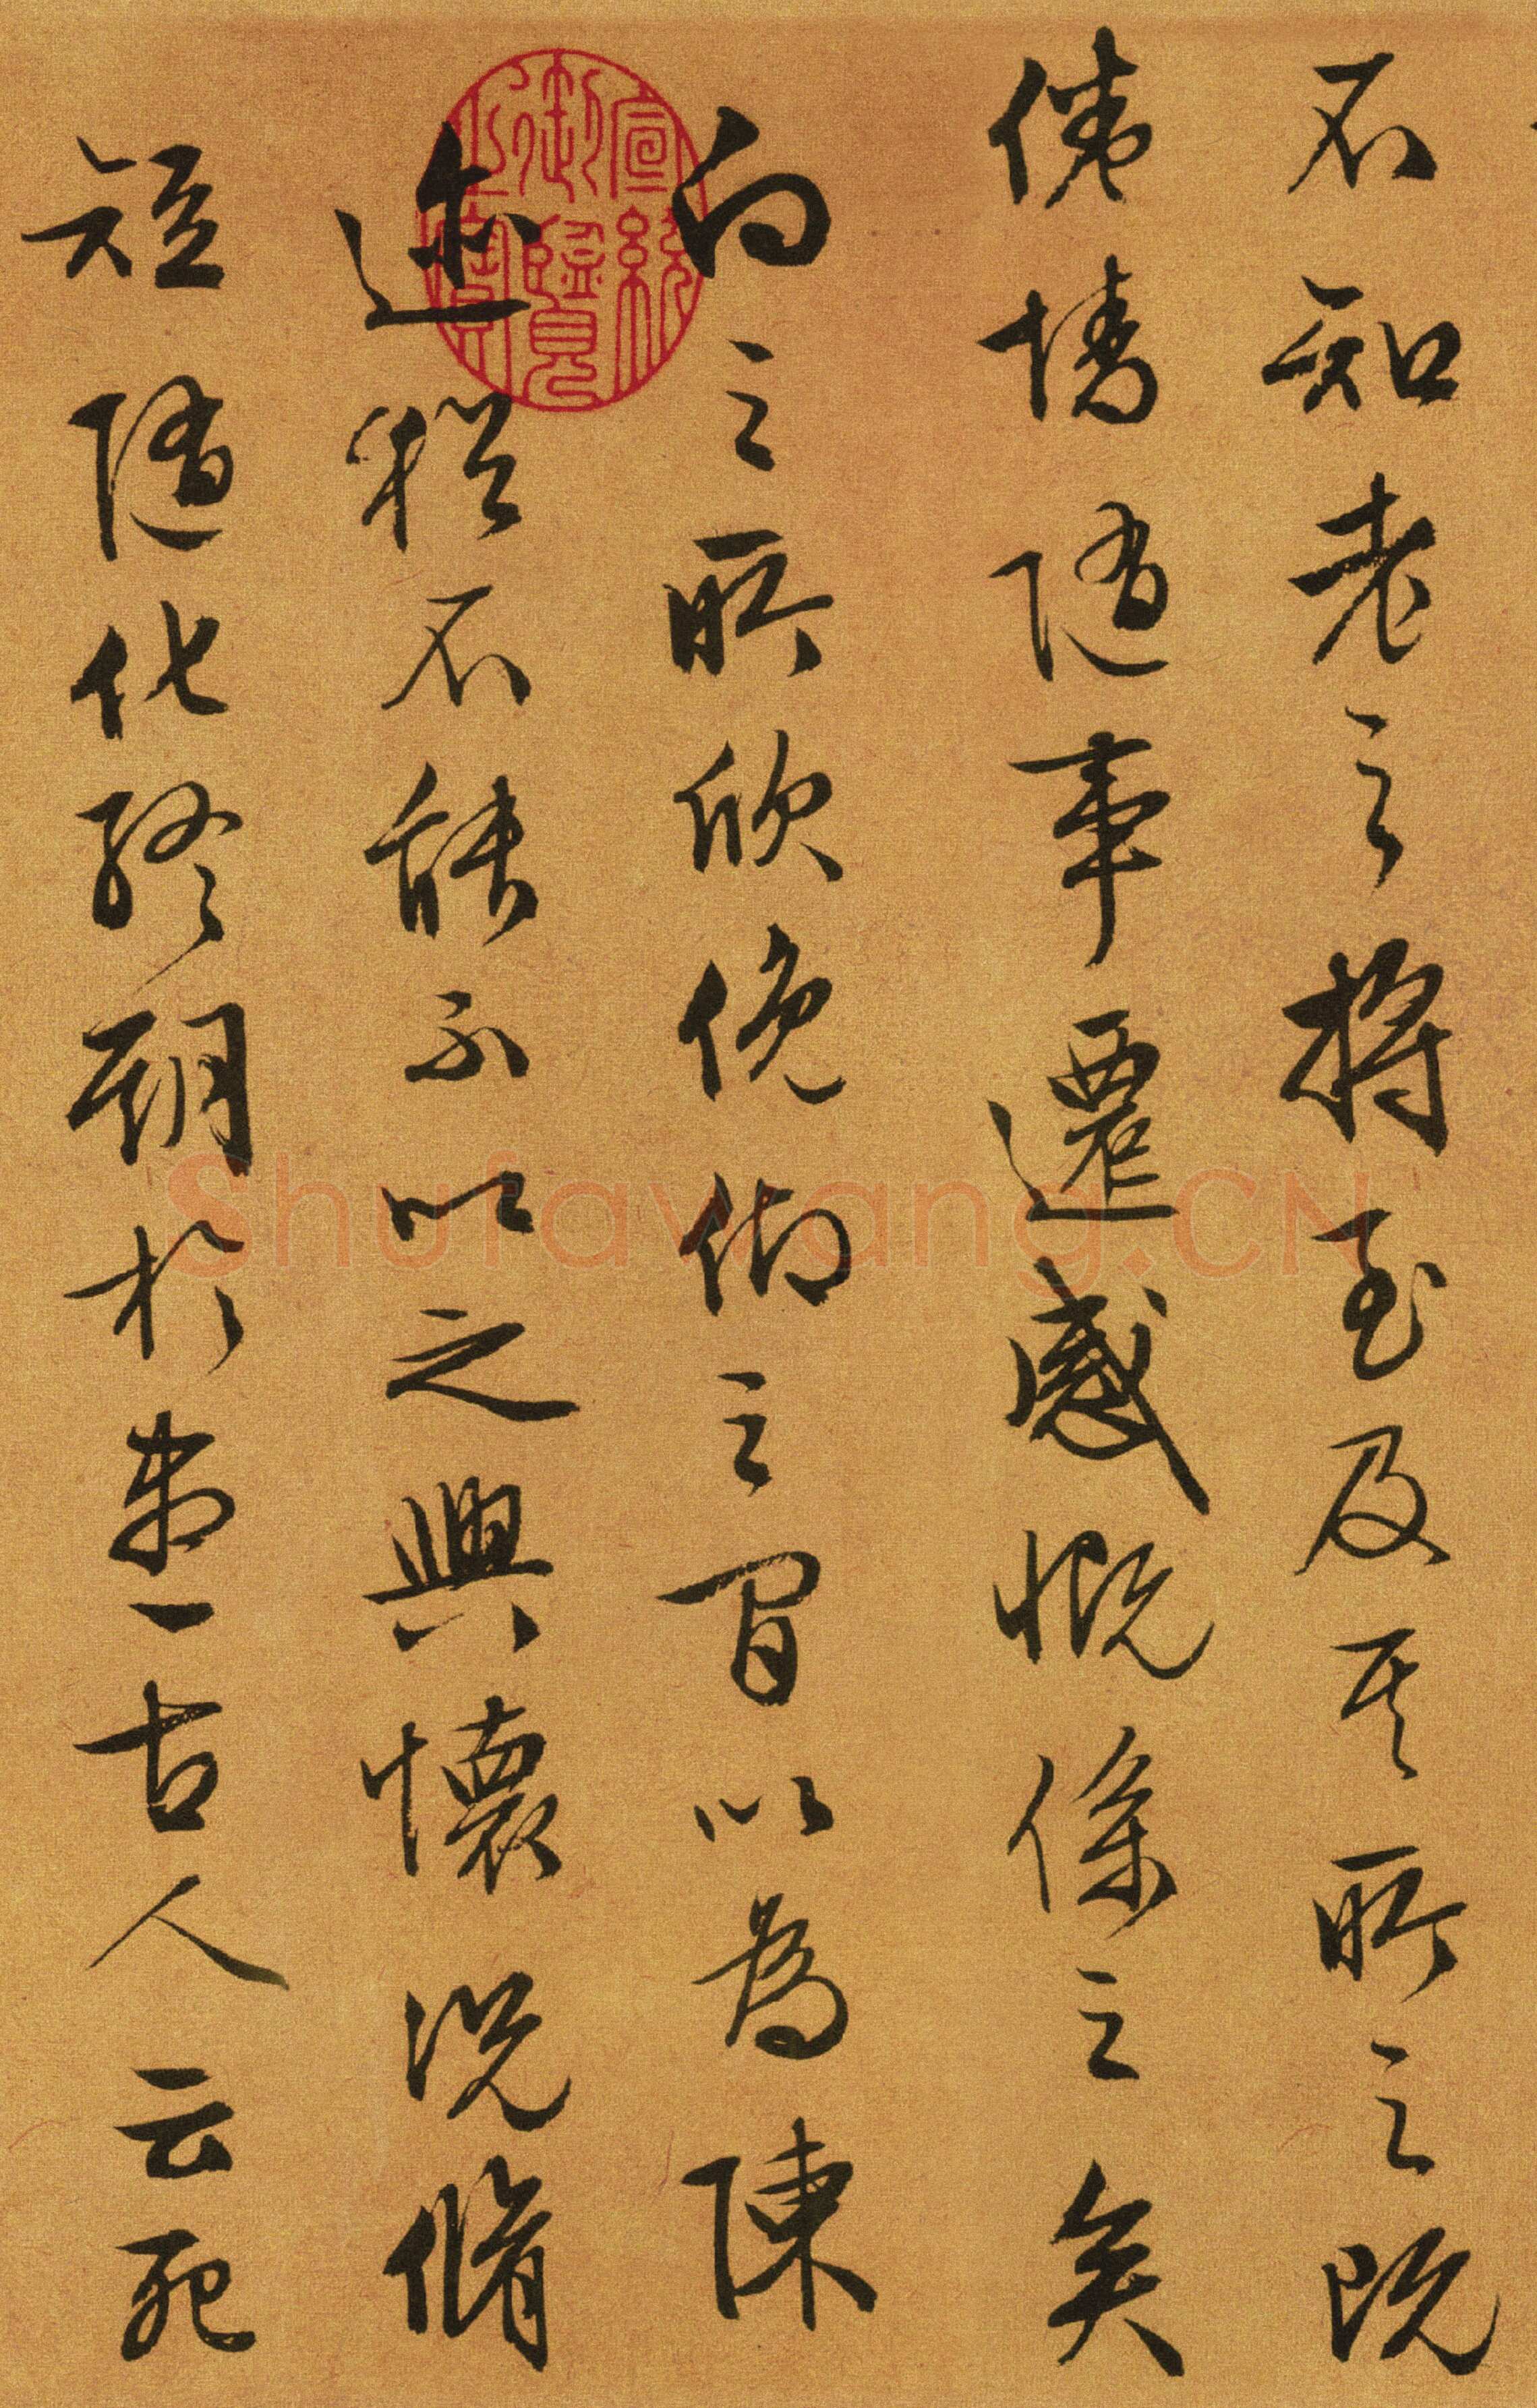 不知老之將至及其所之既
倦情隨事遷感慨係之矣
向之所欣俛仰之間以為陳
迹猶不能不以之興懷況脩
短隨化終期於盡古人云死
宣統御覽之寶
Shufawang.CN